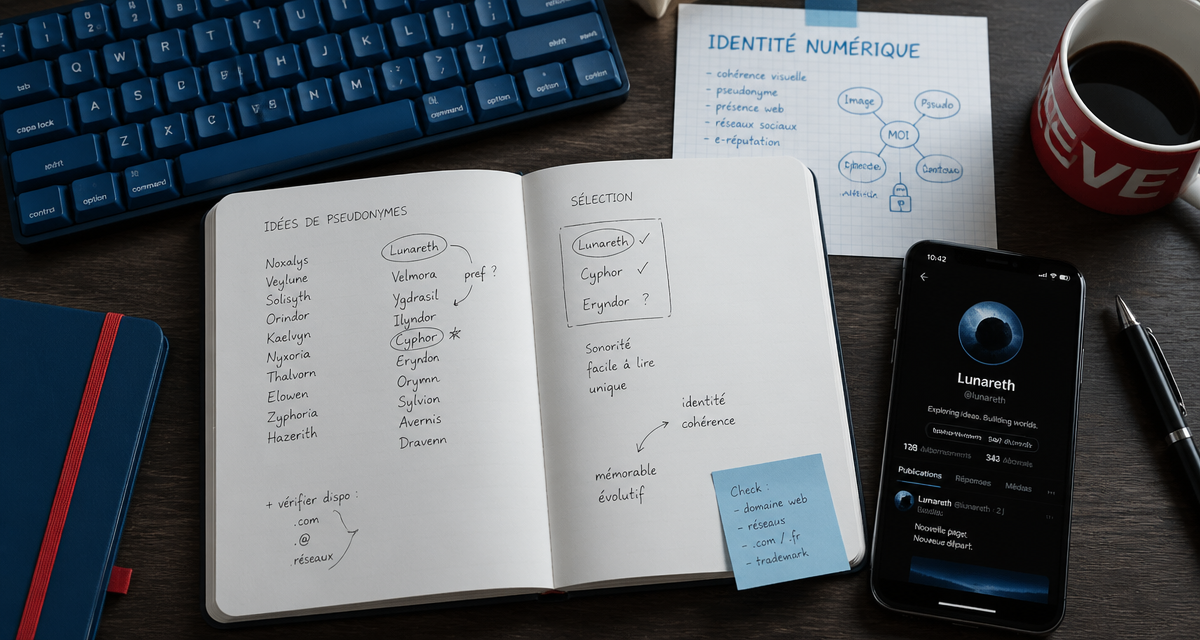 IDENTITÉ NUMÉRIQUE
- cohérence visuelle
- pseudonyme
- présence web
- réseaux sociaux
- e-réputation
Image
Pseudo
MOI
IDÉES DE PSEUDONYMES
Noxalys
Veylune
Solisyth
Orindor
Kaelvyn
Nyxoria
Thalvorn
Elowen
Zyphoria
Hazerith
Lunareth
pref ?
Velmora
Ygdrasil
Ilyndor
Cyphor *
Eryndon
Orymn
Sylvion
Avernis
Dravenn
+ vérifier dispo :
.com
.@
.réseaux
SÉLECTION
Lunareth ✓
Cyphor ✓
Eryndor ?
Sonorité
facile à lire
unique
identité
cohérence
mémorable
évolutif
Check :
- domaine web
- réseaus
- .com / .fr
- trademark
10:42
Lunareth
@lunareth
Exploring ideas. Building worlds.
128
343
Publications Réponses Médias ...
Lunareth @lunareth · 2j
Nouvelle page.
Nouveau départ.
EVE
tab
Q W R T Y U I
caps lock
A S C H J K L
Z X C N M
control
option
command
command
option
option